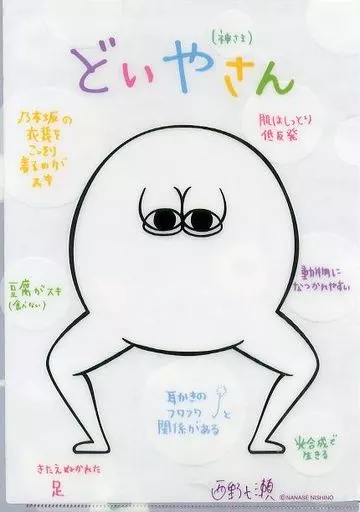 (神さま)
どいやさん
乃木坂の
衣装を
こっそり
着るのが
好き
肌はしっとり
低反発
豆腐がスキ
(食べない)
動物に
なつかれやすい
耳かきの
フワフワと
関係がある
光合成で
生きる
きたえぬかれた
足
西野七瀬
©NANASE NISHINO